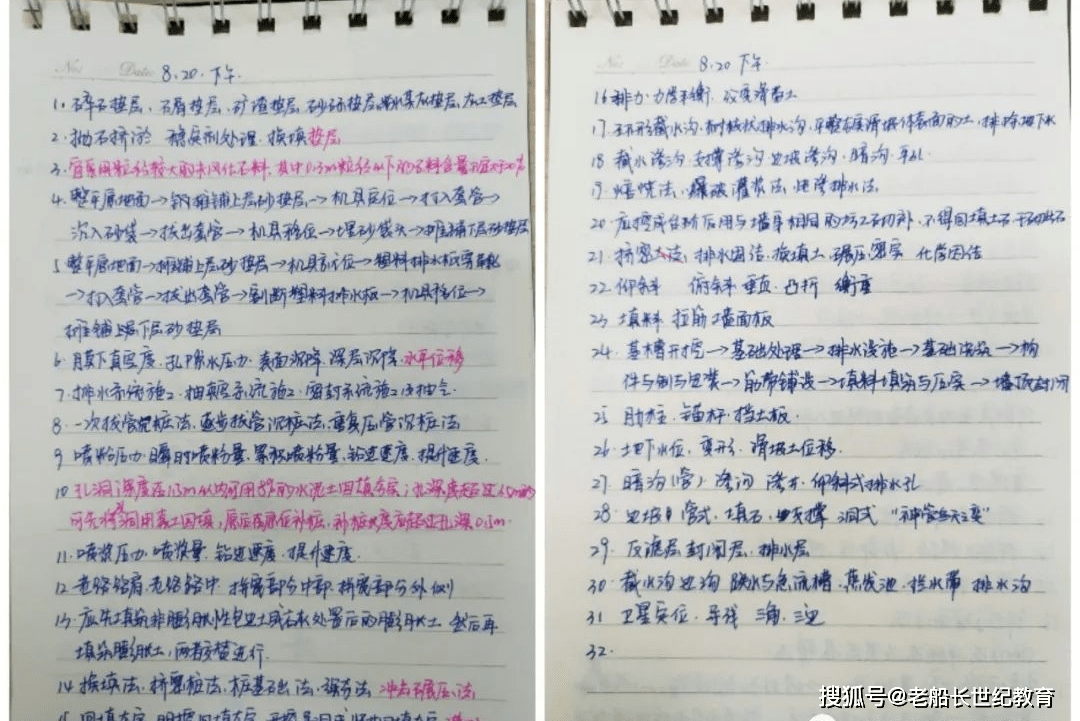 No:
Date:
8.20.下午
1. 碎石垫层、石屑垫层、矿渣垫层、砂砾垫层、粉煤灰垫层、灰土垫层
2. 抛石挤淤 稳定剂处理、换填垫层
3. 宜采用粒径较大的未风化石料,其中0.3m粒径以下的石料含量不宜大于20%
4. 整平原地面→摊铺下层砂垫层→机具定位→打入套管→
沉入砂袋→拔出套管→机具移位→埋砂袋头→摊铺上层砂垫层
5. 整平原地面→摊铺下层砂垫层→机具就位→塑料排水板穿靴
→打入套管→拔出套管→割断塑料排水板→机具移位→
摊铺上层砂垫层
6. 膜下真空度、孔隙水压力、表面沉降、深层沉降、水平位移
7. 排水系统施工、抽真空系统施工、密封系统施工及抽气.
8. 一次拔管成桩法、逐步拔管成桩法、重复压管成桩法
9. 喷粉压力、瞬时喷粉量、累积喷粉量、钻进速度、提升速度.
10. 孔洞深度在1.5m以内可用8%的水泥土回填夯实;孔深度超过1.5m时
可先将孔洞用素土回填,然后在原位补桩,补桩长度应超过孔深0.5m.
11. 喷浆压力、喷浆量、钻进速度、提升速度.
12. 老路路肩、老路路中、拼宽部分中部、拼宽部分外侧
13. 应先填筑非膨胀性包边土或石灰处置后的膨胀土 然后再
填筑膨胀土,两者交替进行.
14. 换填法、挤密桩法、桩基础法、强夯法、冲击碾压法
15. 回填夯实、明挖回填夯实、
No:
Date:
8.20 下午
16. 排水、力学平衡、改变滑带土
17. 环形截水沟、树枝状排水沟、平整夯实滑坡体表面的土、排除地下水
18. 截水渗沟、支撑渗沟、边坡渗沟、暗沟、平孔
19. 焙烧法、爆破灌浆法、电渗排水法
20. 应挖成台阶后用与墙身相同的圬工石砌补,不得回填土石或干砌片石
21. 挤密夯实、排水固结、换填土、碾压密实 化学固结
22. 仰斜 俯斜 垂直 凸折 衡重
23. 填料 拉筋 墙面板
24. 基槽开挖→基础处理→排水设施→基础浇筑→构
件预制与安装→筋带铺设→填料填筑与压实→墙顶封闭
25. 肋柱、锚杆、挡土板.
26. 地下水位、变形、滑坡土位移.
27. 暗沟(管) 渗沟 渗井 仰斜式排水孔
28. 边坡 管式、填石、支撑 洞式
29. 反滤层 封闭层、排水层
30. 截水沟 边沟 跌水与急流槽、蒸发池、拦水带 排水沟
31. 卫星定位、导线 三角、三边
32.
搜狐号@老船长世纪教育